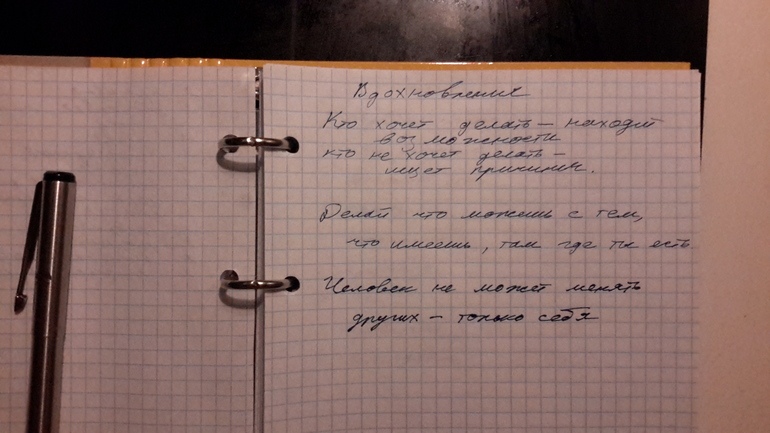 Вдохновения
Кто хочет делать – находит
возможности
кто не хочет делать –
ищет причины.
Делай что можешь с тем,
что имеешь, там где ты есть
Человек не может менять
других – только себя